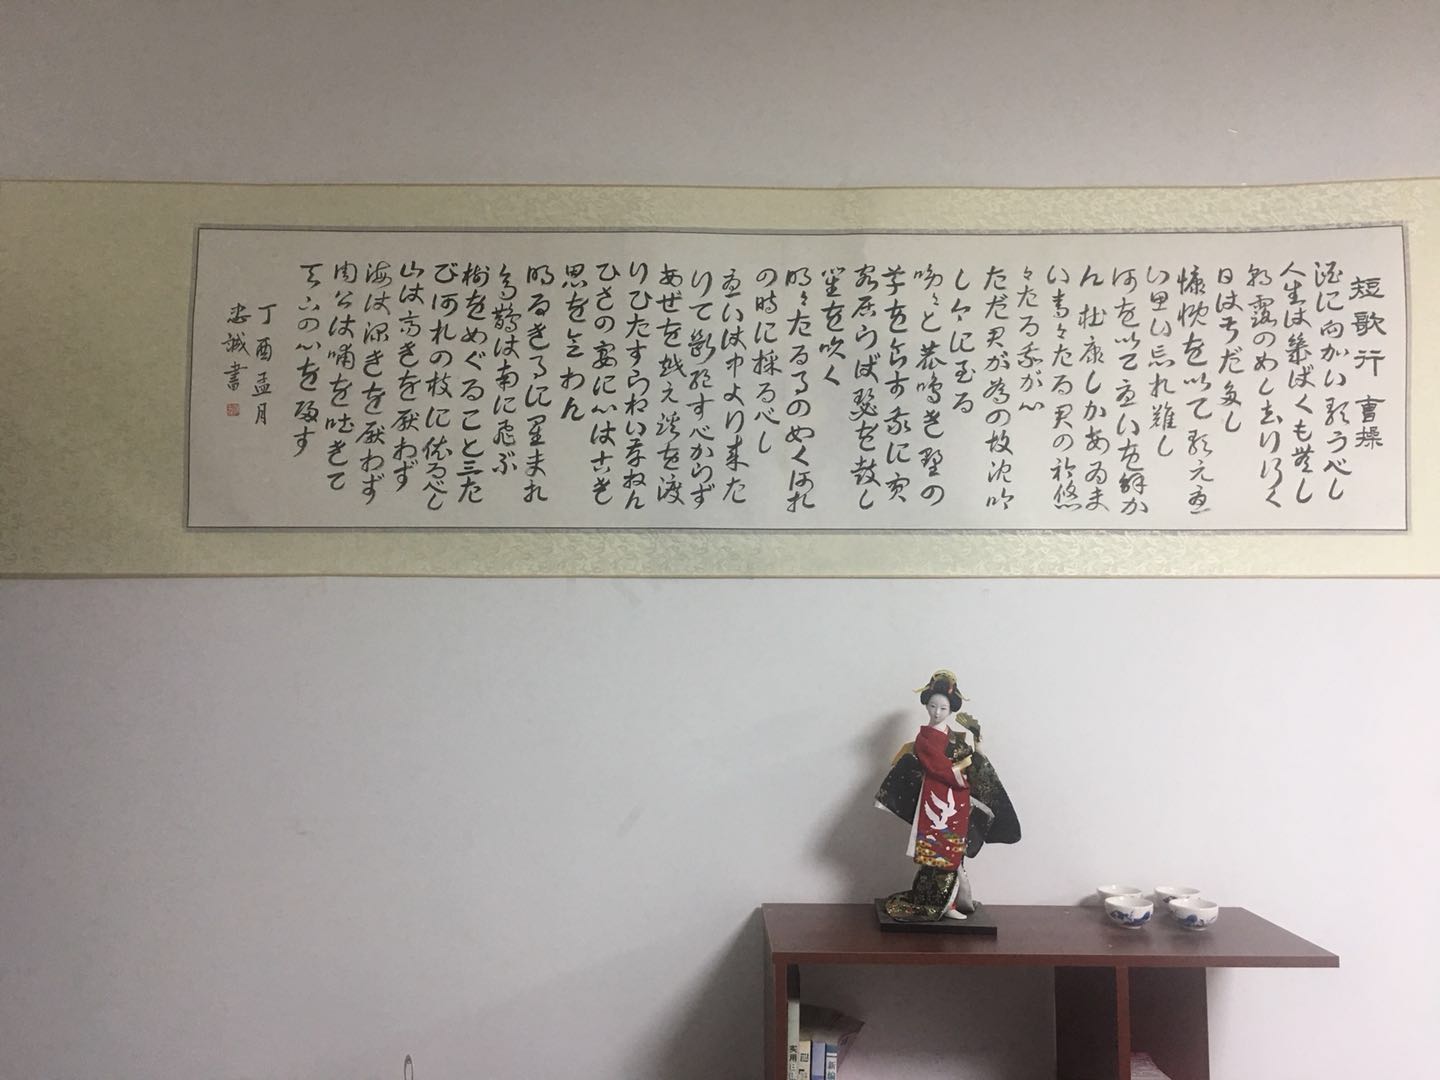 短歌行 曹操
酒に向かい歌うべし
人生は幾ばくも無し
朝露のめし去り行く
日は于だ多し
慷慨を以て歌え憂
い思い忘れ難し
何を以て憂いを解か
ん杜康しかあゐま
い青々たる君の衿悠
々たる我が心
ただ君が為の故沈吟
し今に至る
呦々と鹿鳴き野の
苹を食す我に賓
客居らば瑟を鼓し
笙を吹く
明々たる月のめくば何れ
の時に採るべし
憂いは中より来た
りて断絶すべからず
あぜを越え渓を渡
りひたすらねい存ねん
ひさの宴に心は古き
思を念わん
明るき月に星まれ
烏鵲は南に飛ぶ
樹をめぐること三た
び何れの枝に依るべし
山は高きを厭わず
海は深きを厭わず
周公は哺を吐きて
天下の心を帰す
丁酉孟月
忠誠書
实用
新编